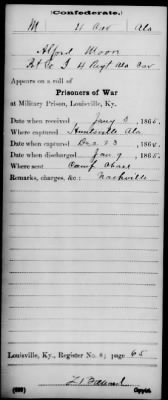 (Confederate.)
M 4 Cav Ala
Alford Moon
Pvt Co I 4 Regt Ala Cav
Appears on a roll of
Prisoners of War
at Military Prison, Louisville, Ky.
Date when received, Jany 3, 1865.
Where captured Huntsville Ala
Date when captured Dec 23, 186
Date when discharged Jan 9, 1865.
Where sent Camp Chase
Remarks, charges, &c: Nashville
Louisville, Ky., Register No. 8; page 65
Copyist.